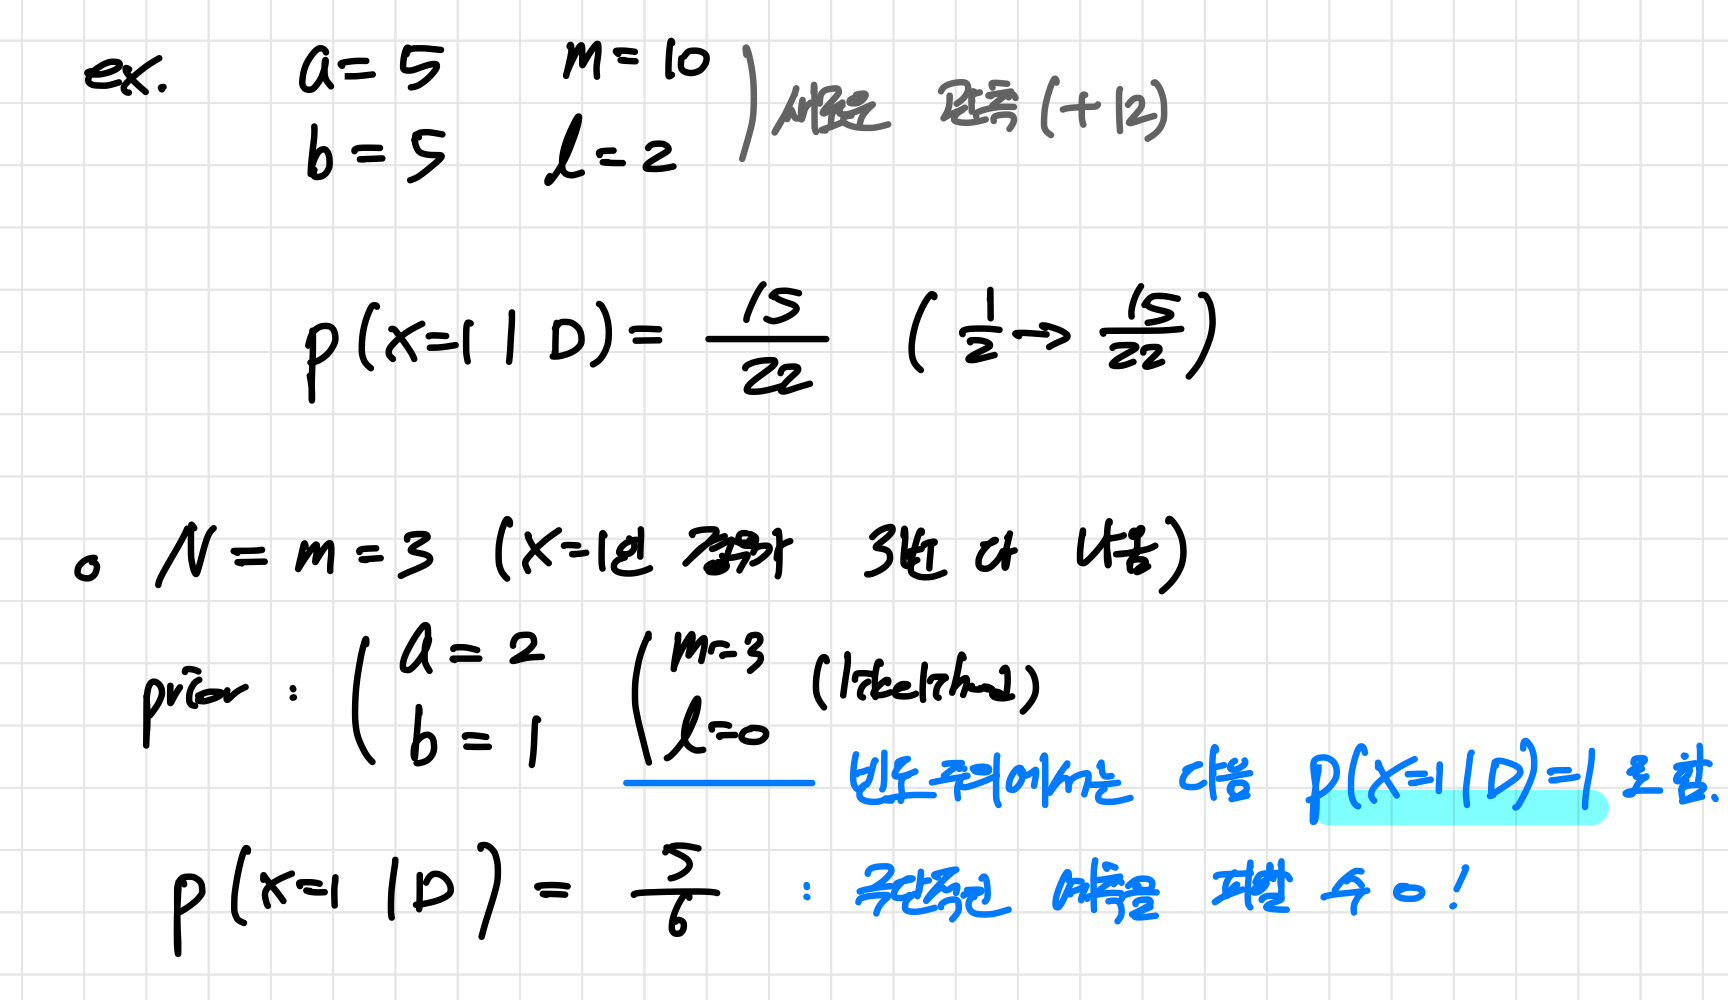 ex. a = 5 m = 10
b = 5 l = 2 ) 새로운 관측 (+12)
p(x=1 | D) = 15/22 (1/2 → 15/22)
o N = m = 3 (x=1인 경우가 3번 다 나옴)
prior : ( a = 2 ( m=3 (likelihood)
b = 1 l=0
빈도주의에서는 다음 p(x=1 | D)=1 로 함.
p(x=1 | D) = 5/6 : 극단적인 예측을 피할 수 o !